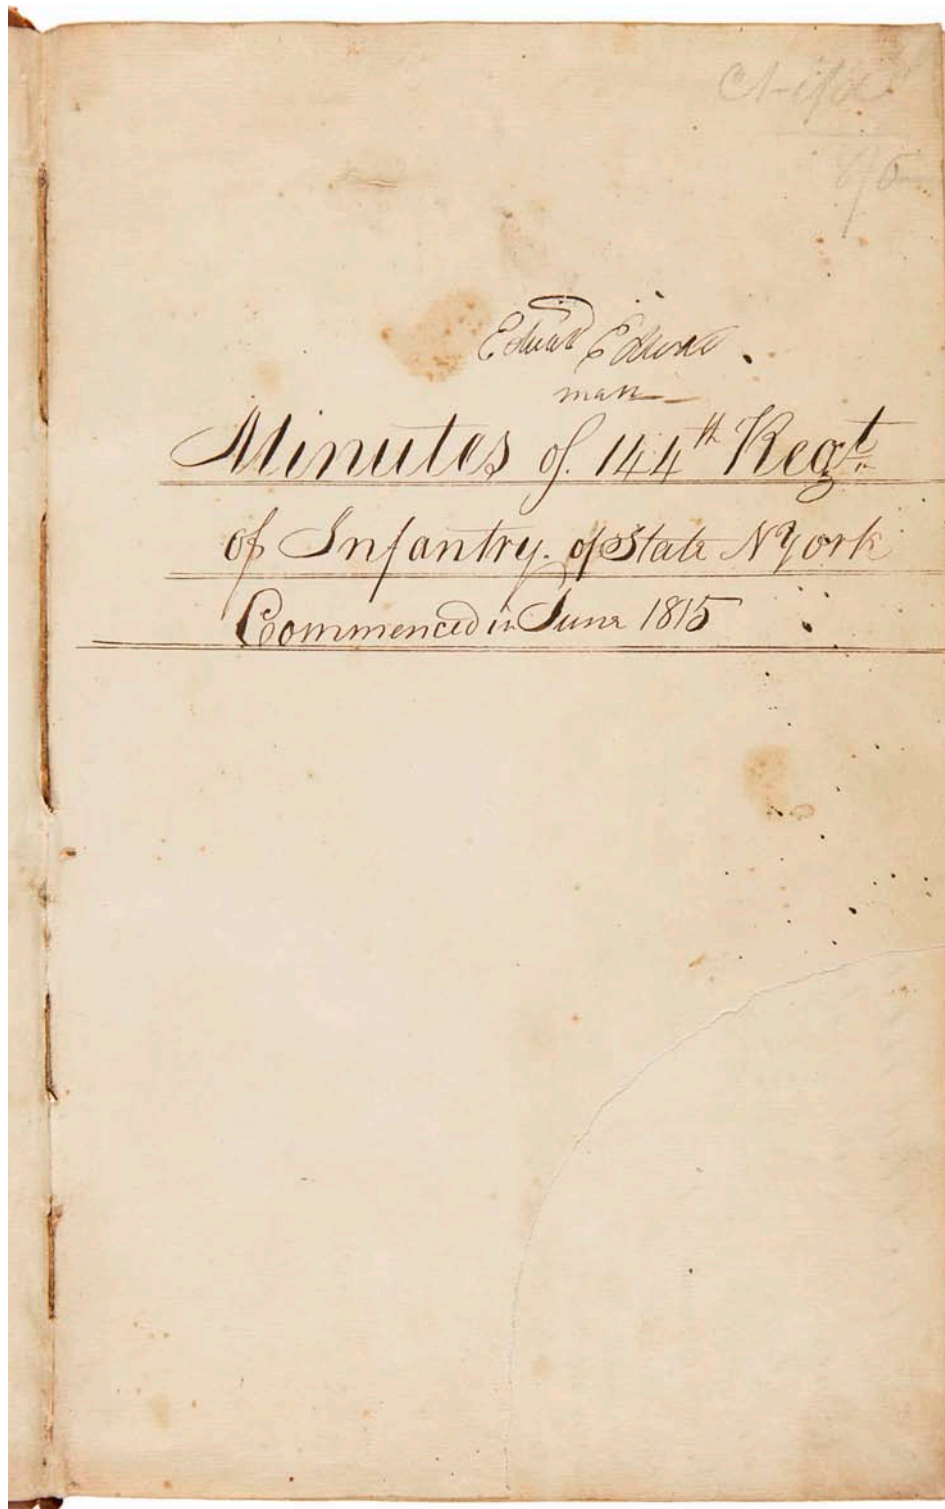 Edward Edward
man
Minutes of. 144th Regt.
of Infantry. of State N York
Commenced in June 1815